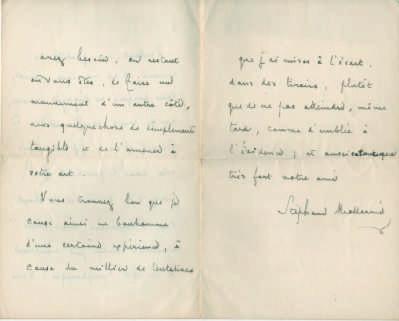 avez besoin, en restant
où vous êtes, de faire un
mouvement d'un autre côté,
vers quelque chose de simplement
tangible et de l'amener à
votre art
Vous trouvez bon que je
cause ainsi en bonhomme
d'une certaine expérience, à
cause du millier de tentations
que j'ai mises à l'écart,
dans des tiroirs, plutôt
que de ne pas atteindre, même
tard, comme d'emblée à
l'évidence; et aussi
très fort notre ami
Stéphane Mallarmé